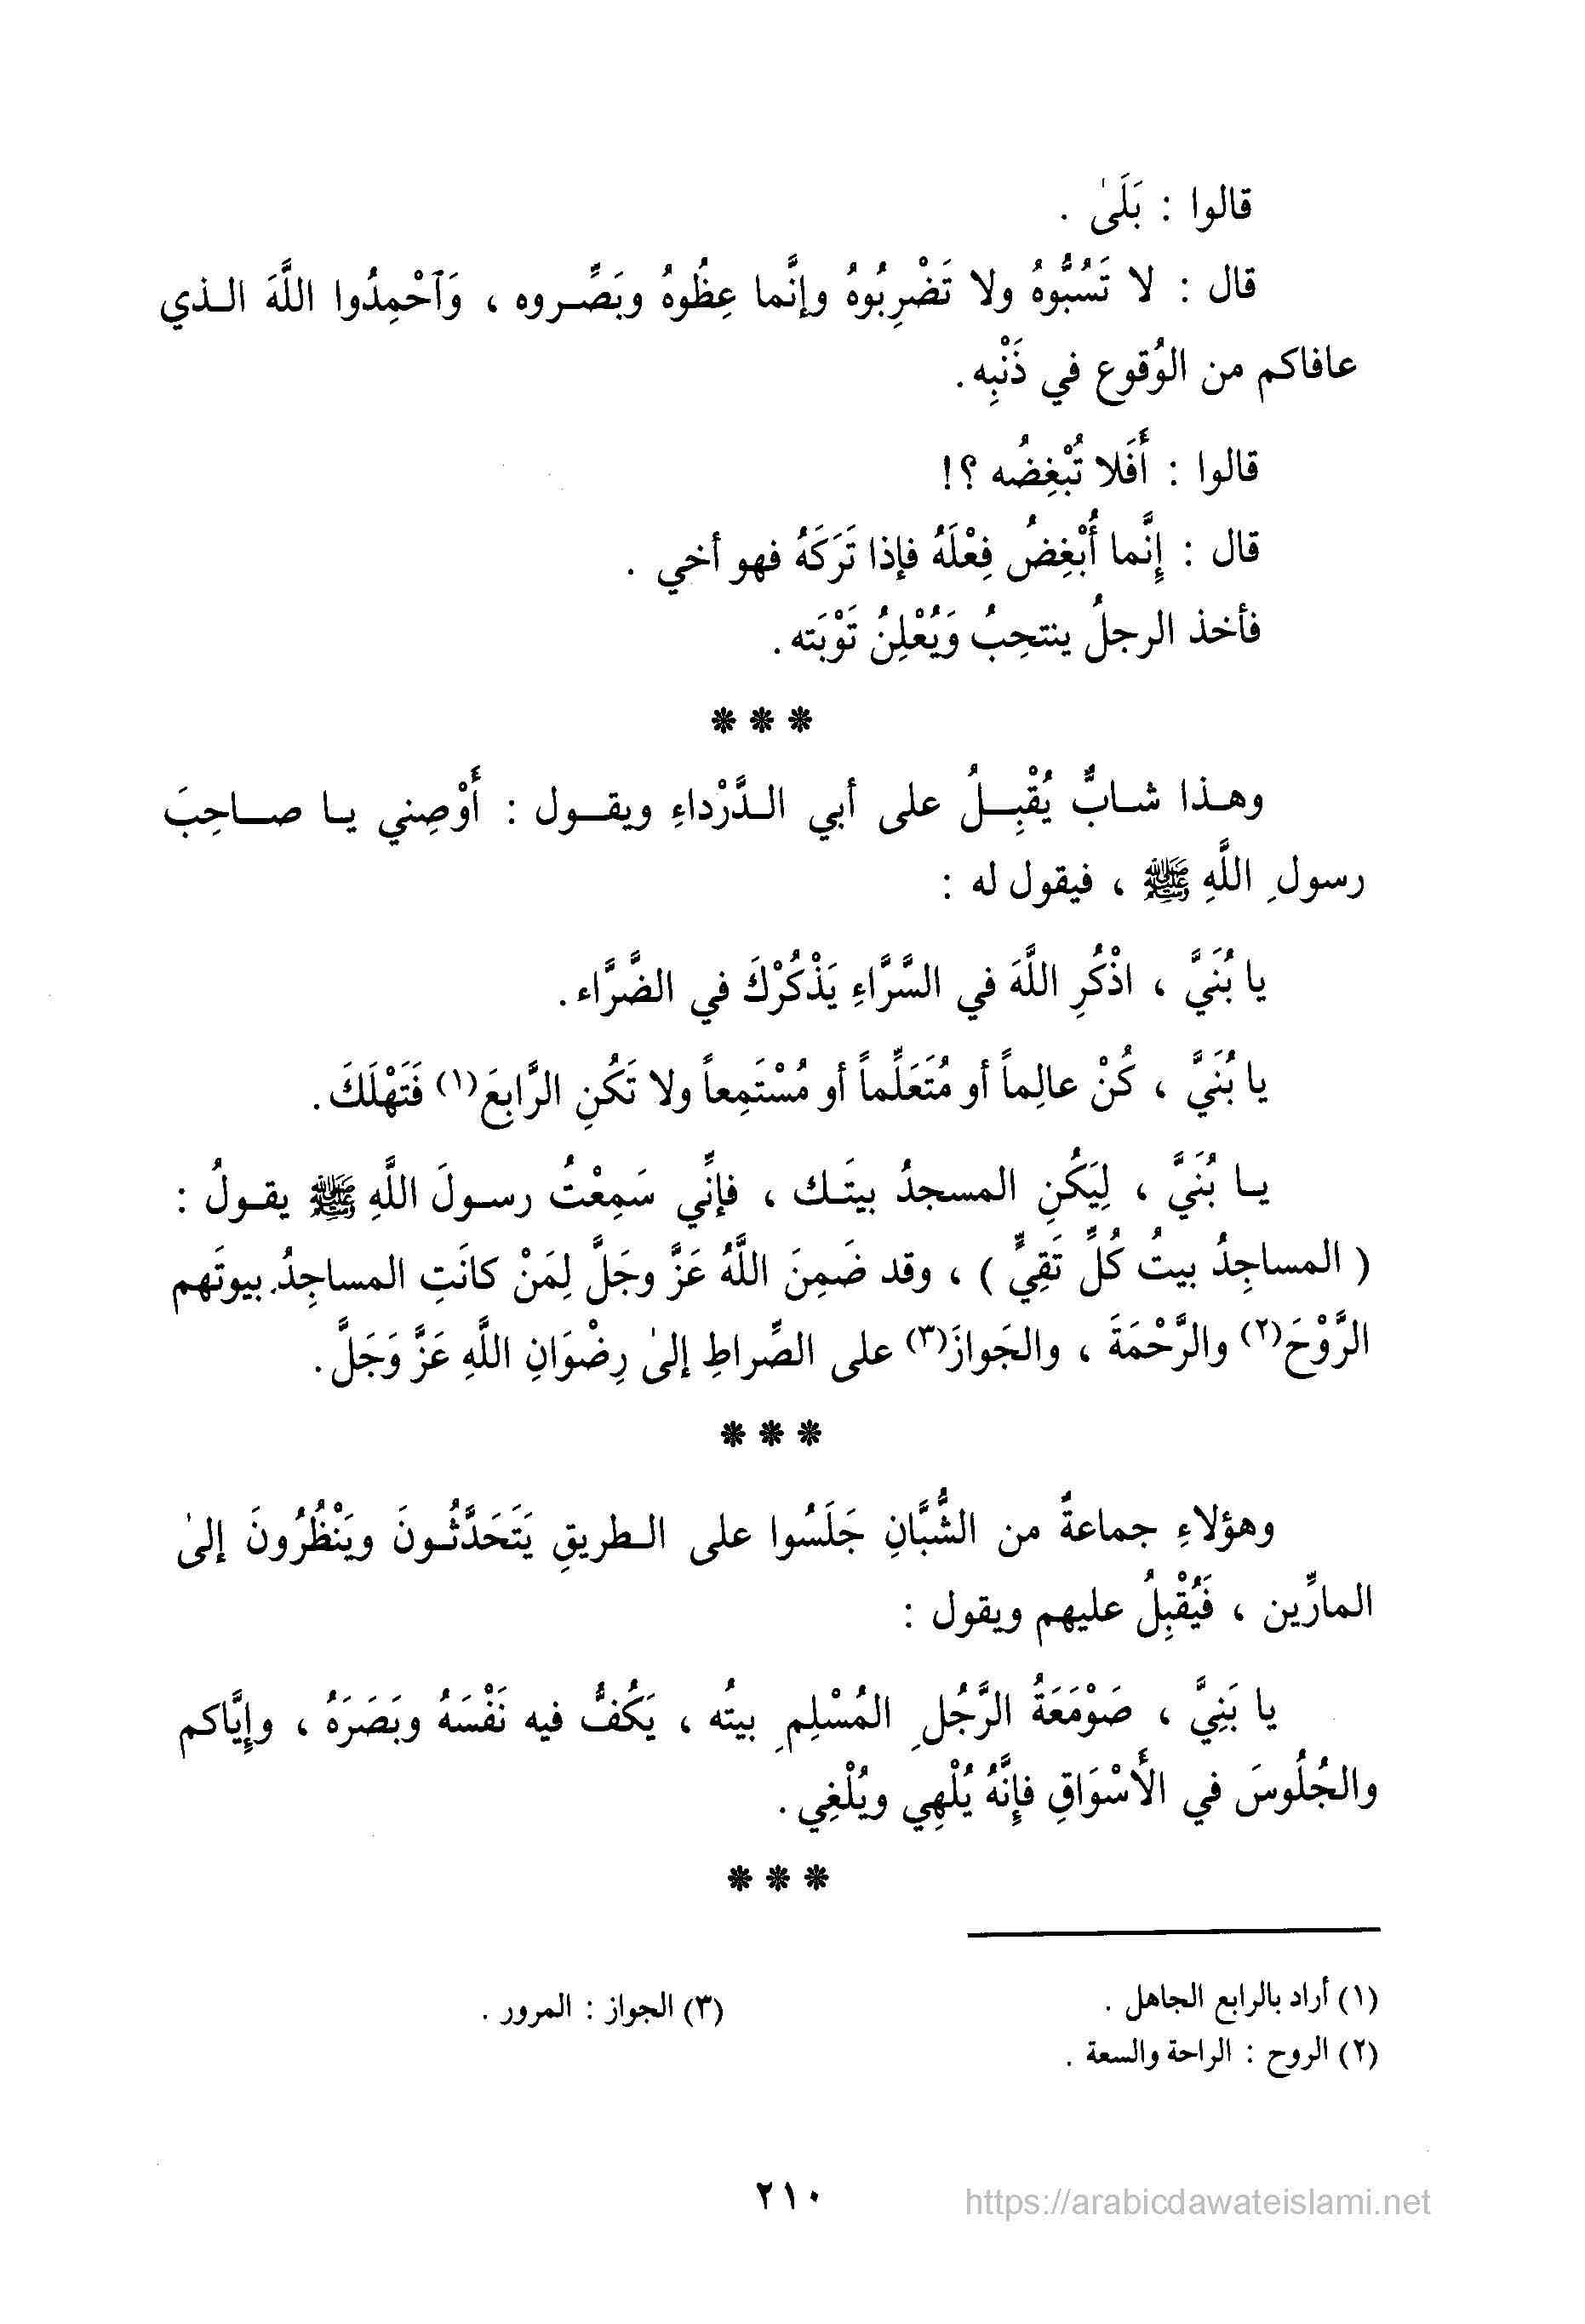 قالوا : بَلَىٰ .
قال : لا تَسُبُّوهُ ولا تَضْرِبُوهُ وإنَّما عِظُوهُ وبَصِّروه ، وَٱحْمِدُوا اللَّهَ الذي
عافاكم من الوُقوع في ذَنْبِه.
قالوا : أَفَلا تُبْغِضُه ؟!
قال : إِنَّما أُبْغِضُ فِعْلَهُ فإذا تَرَكَهُ فهو أخي .
فأخذ الرجلُ ينتحِبُ وَيُعْلِنُ تَوْبَته.
* * *
وهذا شابٌّ يُقْبِلُ على أبي الدَّرْداءِ ويقول : أَوْصِني يا صاحِبَ
رسولِ اللَّهِ ﷺ ، فيقول له :
يا بُنَيَّ ، اذْكُرِ اللَّهَ في السَّرَّاءِ يَذْكُرْكَ في الضَّرَّاء.
يا بُنَيَّ ، كُنْ عالِماً أو مُتَعَلِّماً أو مُسْتَمِعاً ولا تَكُنِ الرَّابِعَ(١) فَتَهْلَكَ.
يا بُنَيَّ ، لِيَكُنِ المسجدُ بيتَك ، فإنِّي سَمِعْتُ رسولَ اللَّهِ ﷺ يقولُ :
( المساجِدُ بيتُ كُلِّ تَقِيٍّ ) ، وقد ضَمِنَ اللَّهُ عَزَّ وجَلَّ لِمَنْ كانَتِ المساجِدُ بيوتَهم
الرَّوْحَ(٢) والرَّحْمَةَ ، والجَوازَ(٣) على الصِّراطِ إلىٰ رِضْوَانِ اللَّهِ عَزَّ وَجَلَّ.
* * *
وهؤلاءِ جماعةٌ من الشُّبَّانِ جَلَسُوا على الطريقِ يَتَحَدَّثُونَ ويَنْظُرُونَ إلىٰ
المارِّين ، فَيُقْبِلُ عليهم ويقول :
يا بَنِيَّ ، صَوْمَعَةُ الرَّجُلِ المُسْلِمِ بيتُه ، يَكُفُّ فيه نَفْسَهُ وبَصَرَهُ ، وإِيَّاكم
والجُلُوسَ في الأَسْوَاقِ فإِنَّهُ يُلْهِي ويُلْغِي.
* * *
(١) أراد بالرابع الجاهل .
(٢) الروح : الراحة والسعة .
(٣) الجواز : المرور .
٢١٠
https://arabicdawateislami.net